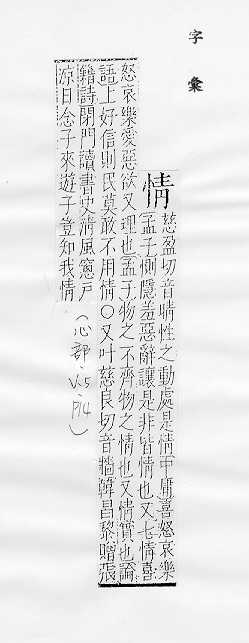 字彙
情
慈盈切音晴性之動處是情中庸喜怒哀樂
孟子惻隱羞惡辭讓是非皆情也又七情喜
怒哀樂愛惡欲又理也孟子物之不齊物之情也又情實也論
語上好信則民莫敢不用情○又叶慈良切音牆韓昌黎贈張
籍詩閉門讀書史清風窻戶
涼日念子來遊子豈知我情
(心部.V.5.P14)